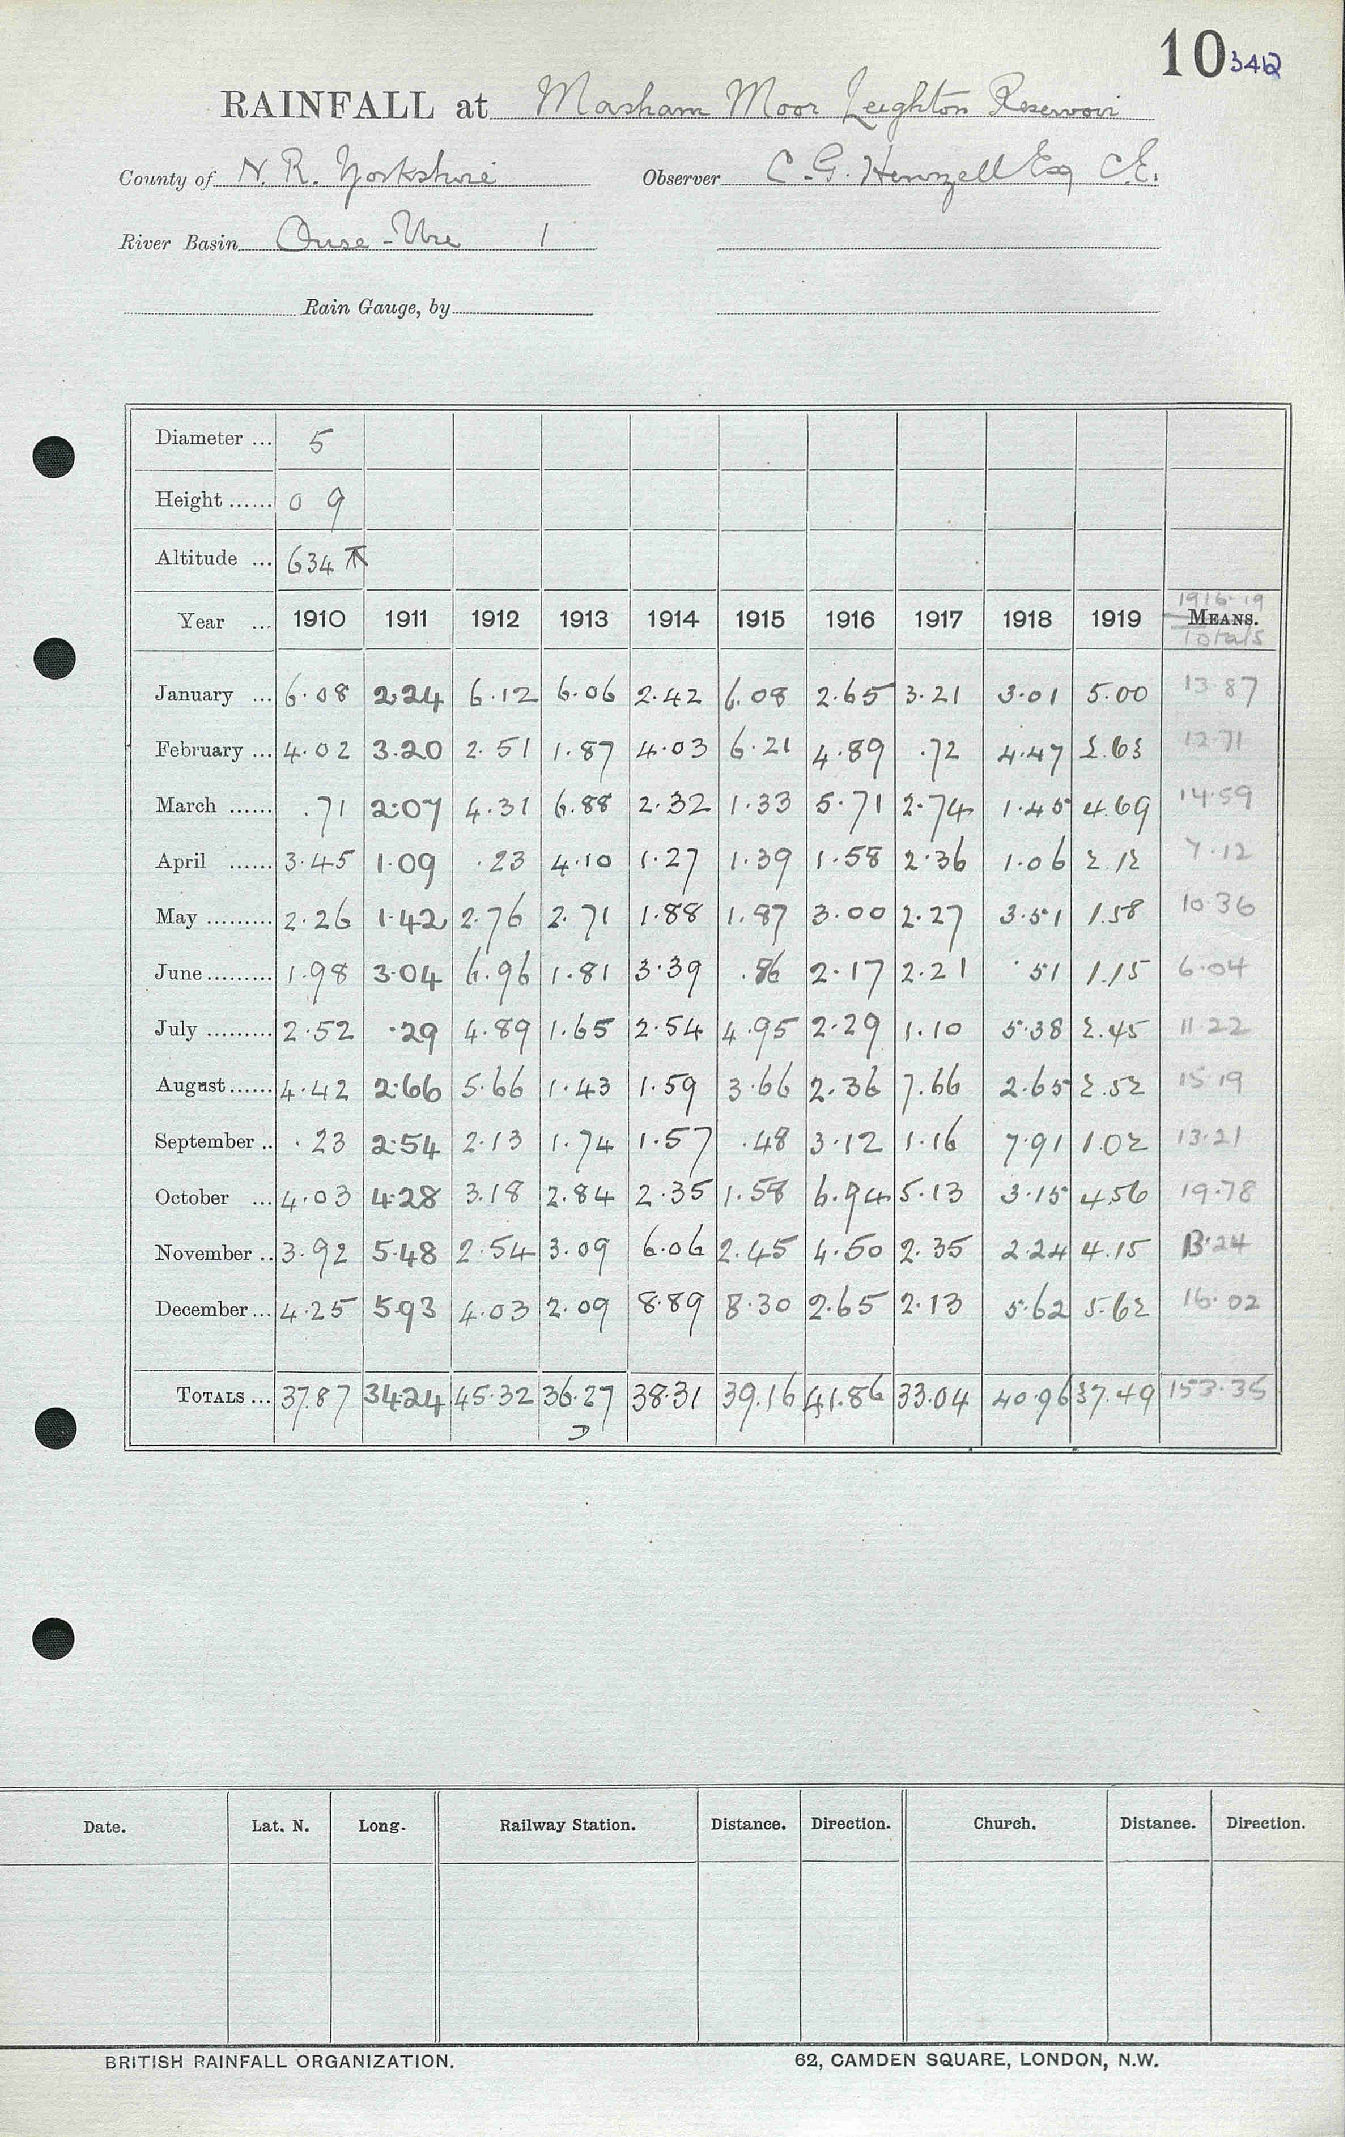 10 342
RAINFALL at Masham Moor Leighton Reservoir
County of N. R. Yorkshire Observer C. G. Henzell Esq C.E.
River Basin Ouse - Ure 1
Rain Gauge, by
Diameter ... 5
Height ...... 0 9
Altitude ... 634 T
1916-19
Year ... 1910 1911 1912 1913 1914 1915 1916 1917 1918 1919 MEANS.
Totals
January ... 6.08 2.24 6.12 6.06 2.42 6.08 2.65 3.21 3.01 5.00 13.87
February ... 4.02 3.20 2.51 1.87 4.03 6.21 4.89 .72 4.47 2.63 12.71
March ...... .71 2.07 4.31 6.88 2.32 1.33 5.71 2.74 1.45 4.69 14.59
April ...... 3.45 1.09 .23 4.10 1.27 1.39 1.58 2.36 1.06 2.12 7.12
May ......... 2.26 1.42 2.76 2.71 1.88 1.87 3.00 2.27 3.51 1.58 10.36
June ......... 1.98 3.04 6.96 1.81 3.39 .86 2.17 2.21 .51 1.15 6.04
July ......... 2.52 .29 4.89 1.65 2.54 4.95 2.29 1.10 5.38 2.45 11.22
August ...... 4.42 2.66 5.66 1.43 1.59 3.66 2.36 7.66 2.65 2.52 15.19
September .. .23 2.54 2.13 1.74 1.57 .48 3.12 1.16 7.91 1.02 13.21
October ... 4.03 4.28 3.18 2.84 2.35 1.58 6.94 5.13 3.15 4.56 19.78
November .. 3.92 5.48 2.54 3.09 6.06 2.45 4.50 2.35 2.24 4.15 13.24
December ... 4.25 5.93 4.03 2.09 8.89 8.30 2.65 2.13 5.62 5.62 16.02
TOTALS ... 37.87 34.24 45.32 36.27 38.31 39.16 41.86 33.04 40.96 37.49 153.35
Date. Lat. N. Long. Railway Station. Distance. Direction. Church. Distance. Direction.
BRITISH RAINFALL ORGANIZATION. 62, CAMDEN SQUARE, LONDON, N.W.